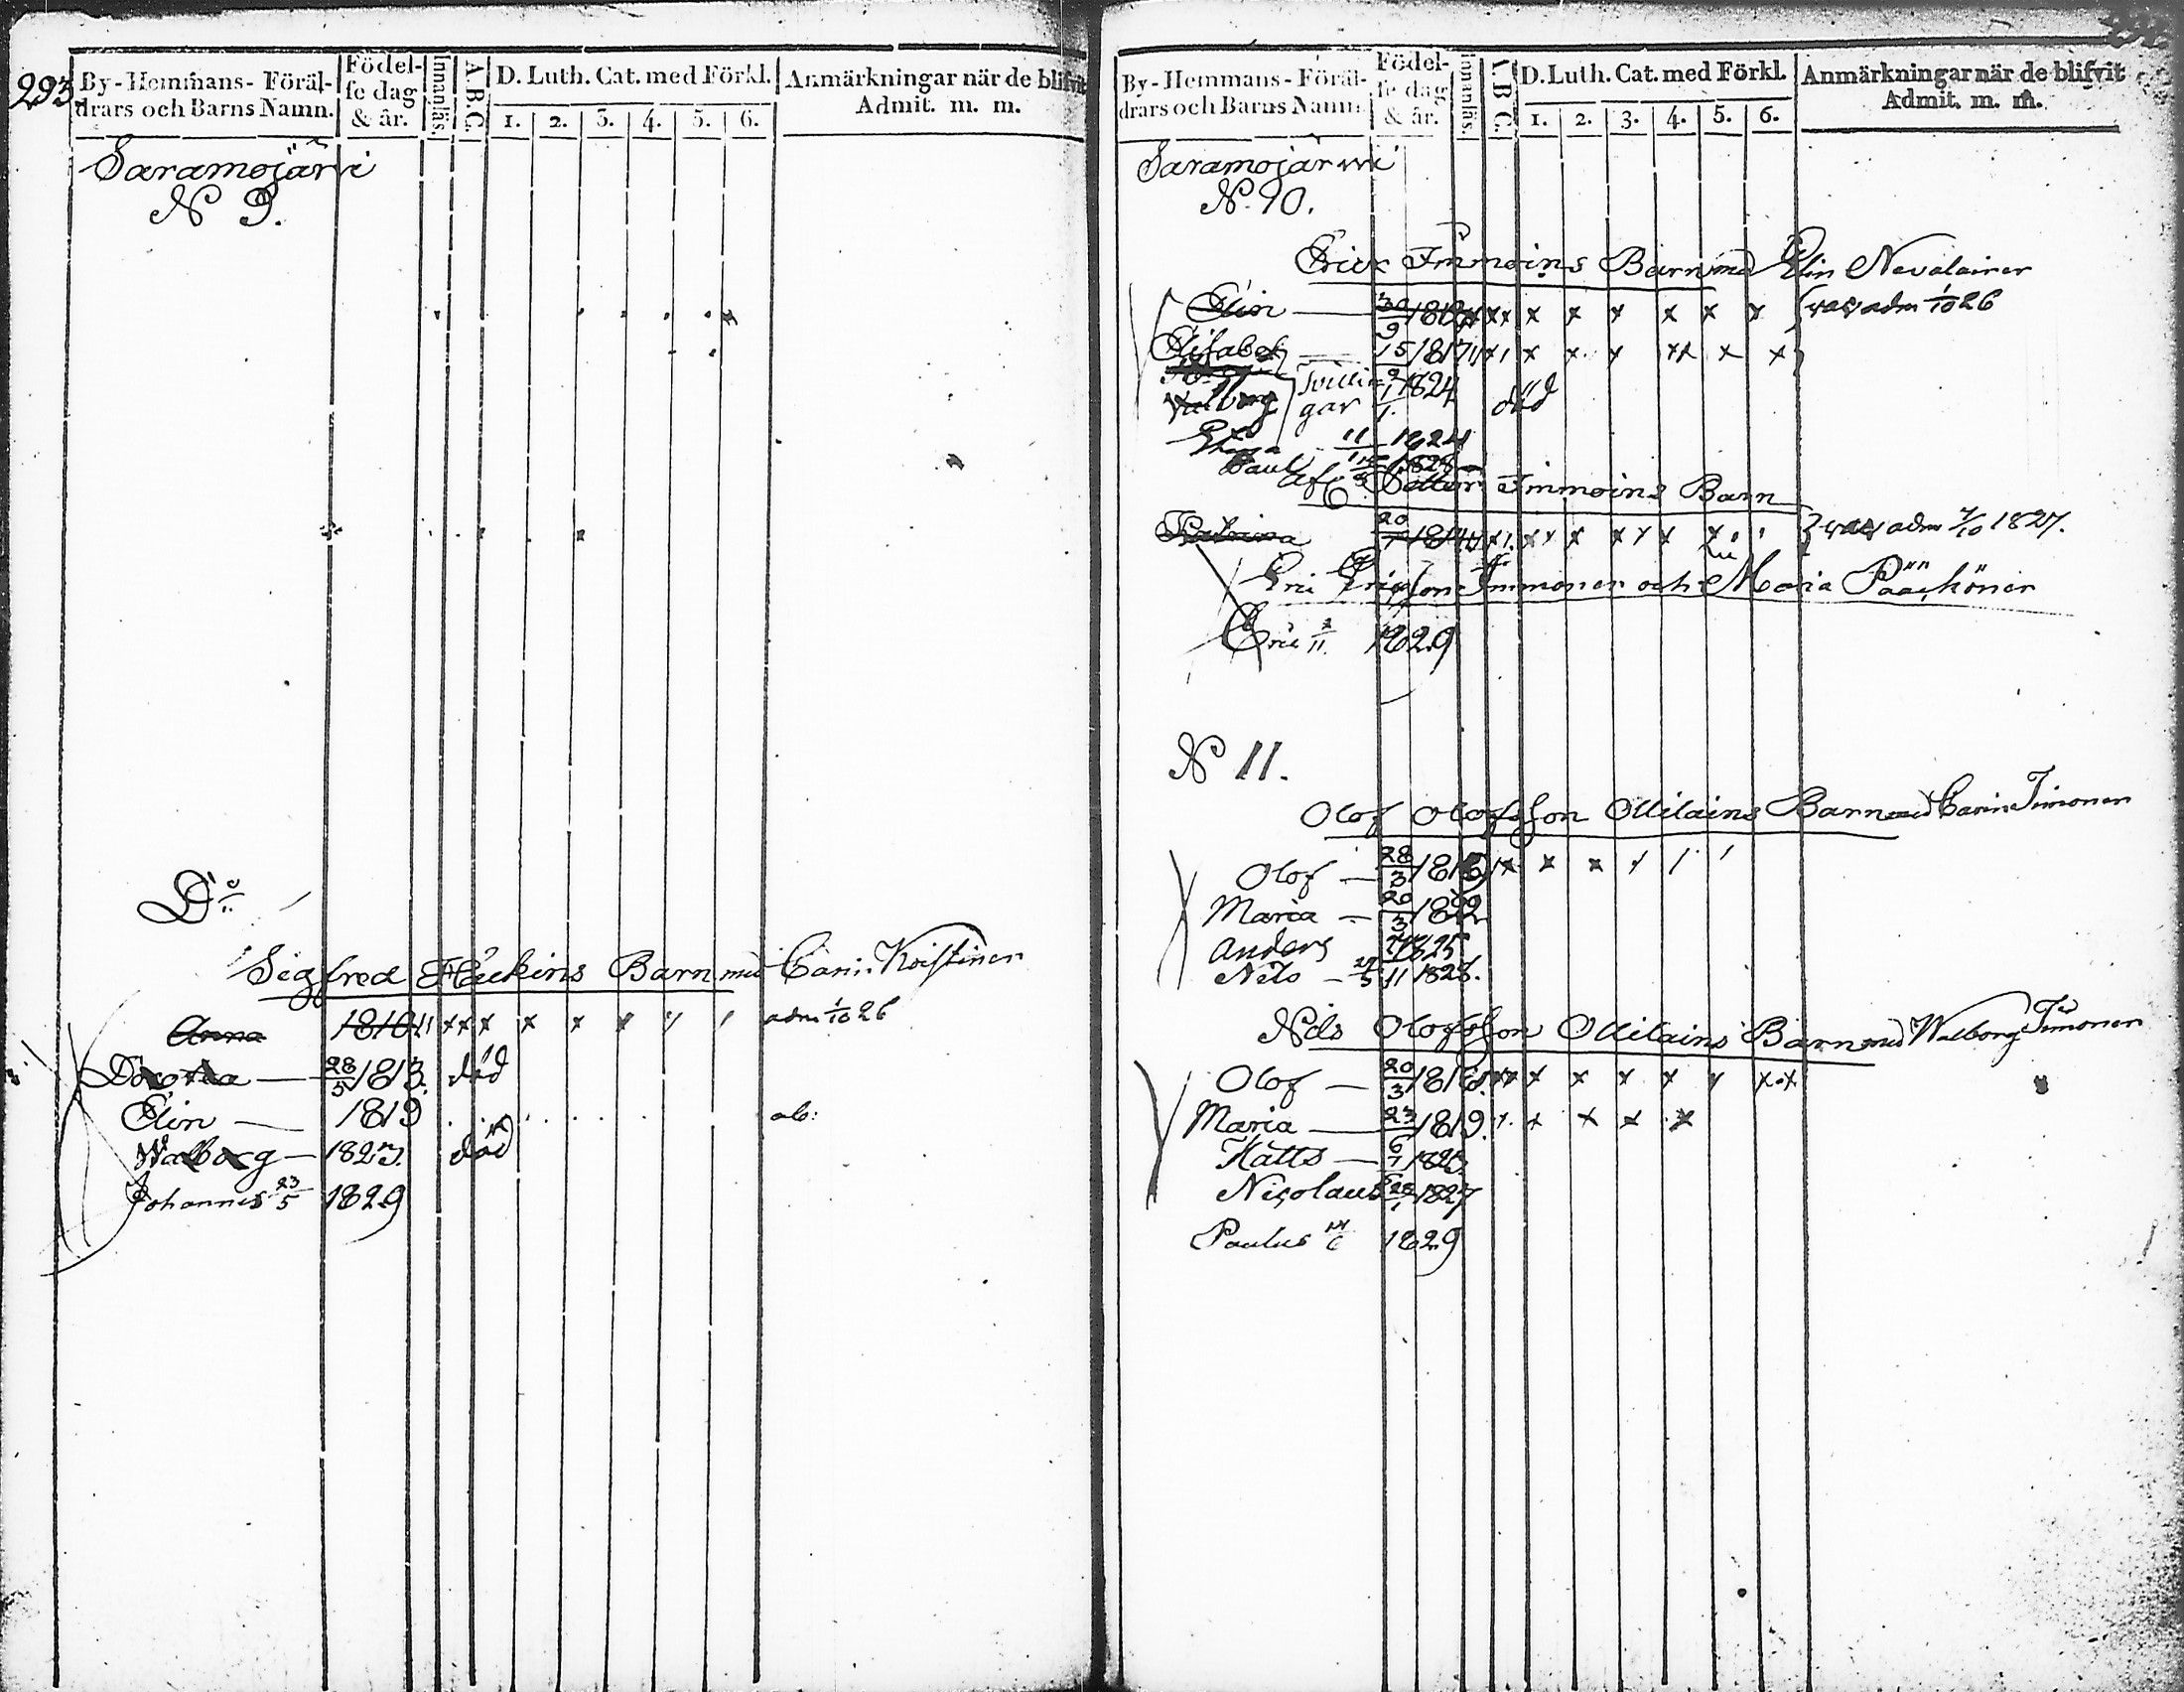 293
By-Hemmans-Föräl-
drars och Barns Namn.
Födel-
se dag
& år.
Innanläs.
A.B.C.
D. Luth. Cat. med Förkl.
1. 2. 3. 4. 5. 6.
Anmärkningar när de blifvit
Admit. m. m.
Saramojärvi
N 9.
Do
Sigfred Barn med Carin Koistinen
Anna 1810 x x x x x x adm 1/10 26
Dorotea — 28/5 1813. död
Elin — 1819 ab:
Walborg — 1823. död
Johannes 23/5 1829
By-Hemmans-Föräl-
drars och Barns Namn.
Födel-
se dag
& år.
Innanläs.
A.B.C.
D. Luth. Cat. med Förkl.
1. 2. 3. 4. 5. 6.
Anmärkningar när de blifvit
Admit. m. m.
Saramojärwi
N. 10.
Erick Immoins Barn med Elin Nevalainen
Elin — 30/9 x x x x x x x adm 1/10 26
Elisabet — 15 1817 x x x x xx x x
Walborg Tvillin
gar 1824 död
11 1824
Paul 1828
Af Petter Immoins Barn
Katrina 20 x x x x x x adm 7/10 1827.
Eric Ericsson Immonen och Maria Pääkönen
Eric 11. 1829
N 11.
Olof Olofsson Ollilains Barn med Carin Timonen
Olof — 28/3 x x x
Maria — 20/3
Anders 1825
Nils — 1828.
Nils Olofsson Ollilains Barn med Walborg Timonen
Olof — 20/3 x x x x x x x
Maria — 23 1819. x x x x
Matts —
Nicolaus 28/1 1827
Paulus 1829